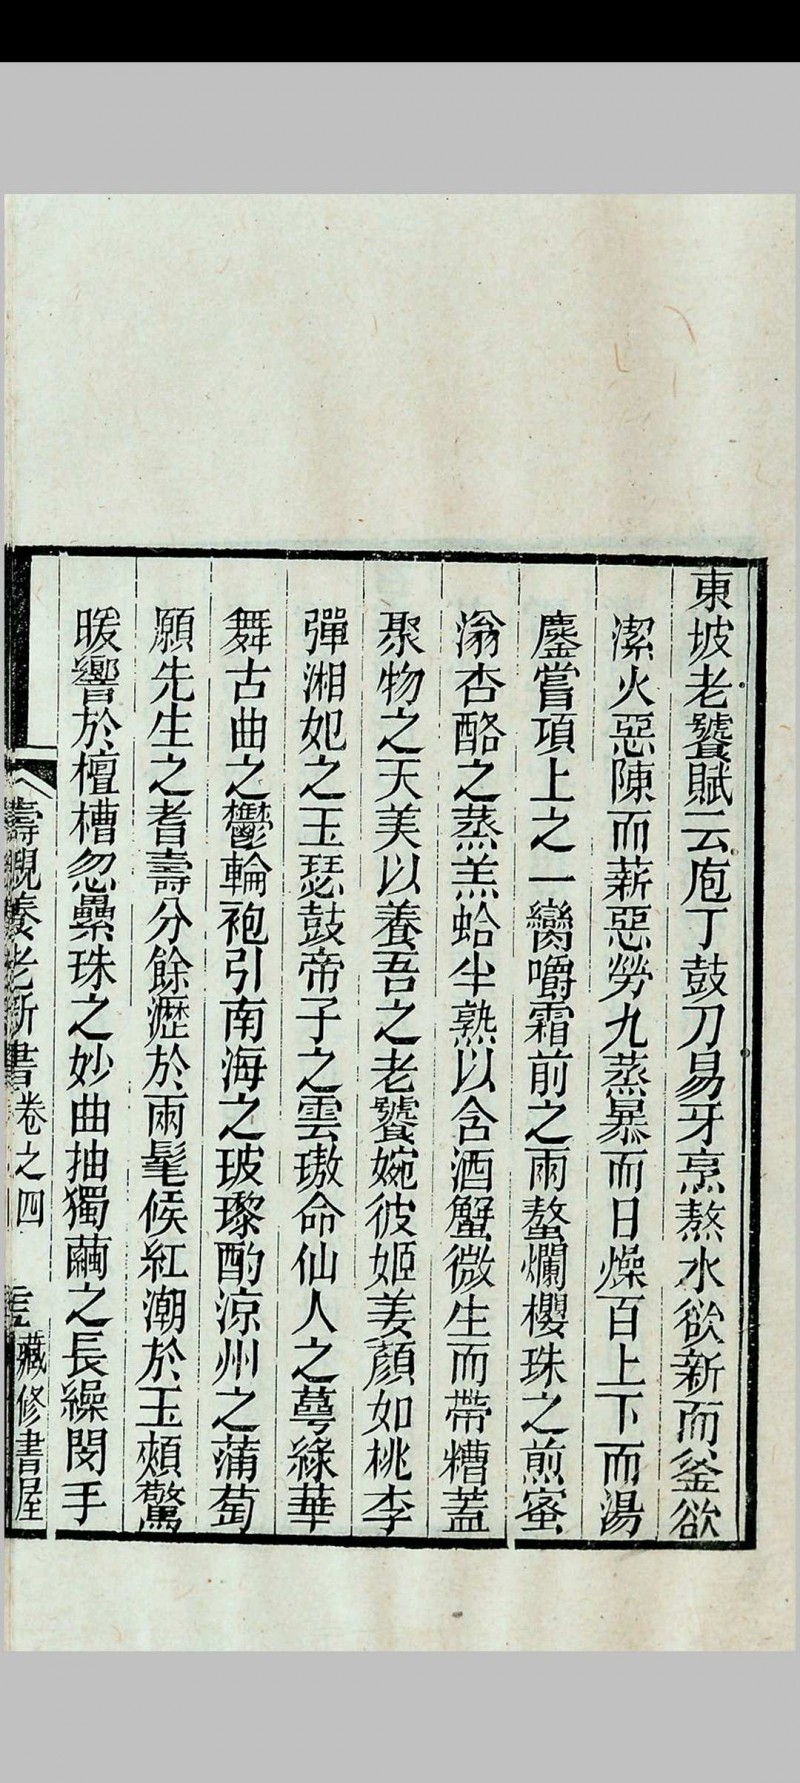 東坡老饕賦云庖丁鼓刀易牙烹熬水欲新而釜欲
潔火惡陳而薪惡勞九蒸暴而日燥百上下而湯
鏖嘗項上之一臠嚼霜前之兩螯爛櫻珠之煎蜜
滃杏酪之蒸羔蛤半熟以含酒蟹微生而帶糟蓋
聚物之夭美以養吾之老饕婉彼姬姜顏如桃李
彈湘妃之玉瑟鼓帝子之雲璈命仙人之萼綠華
舞古曲之鬱輪袍引南海之玻瓈酌涼州之蒲萄
願先生之耆壽分餘瀝於兩髦候紅潮於玉頰驚
暖響於檀槽忽纍珠之妙曲抽獨繭之長繰閔手
壽親養老新書卷之四
藏修書屋